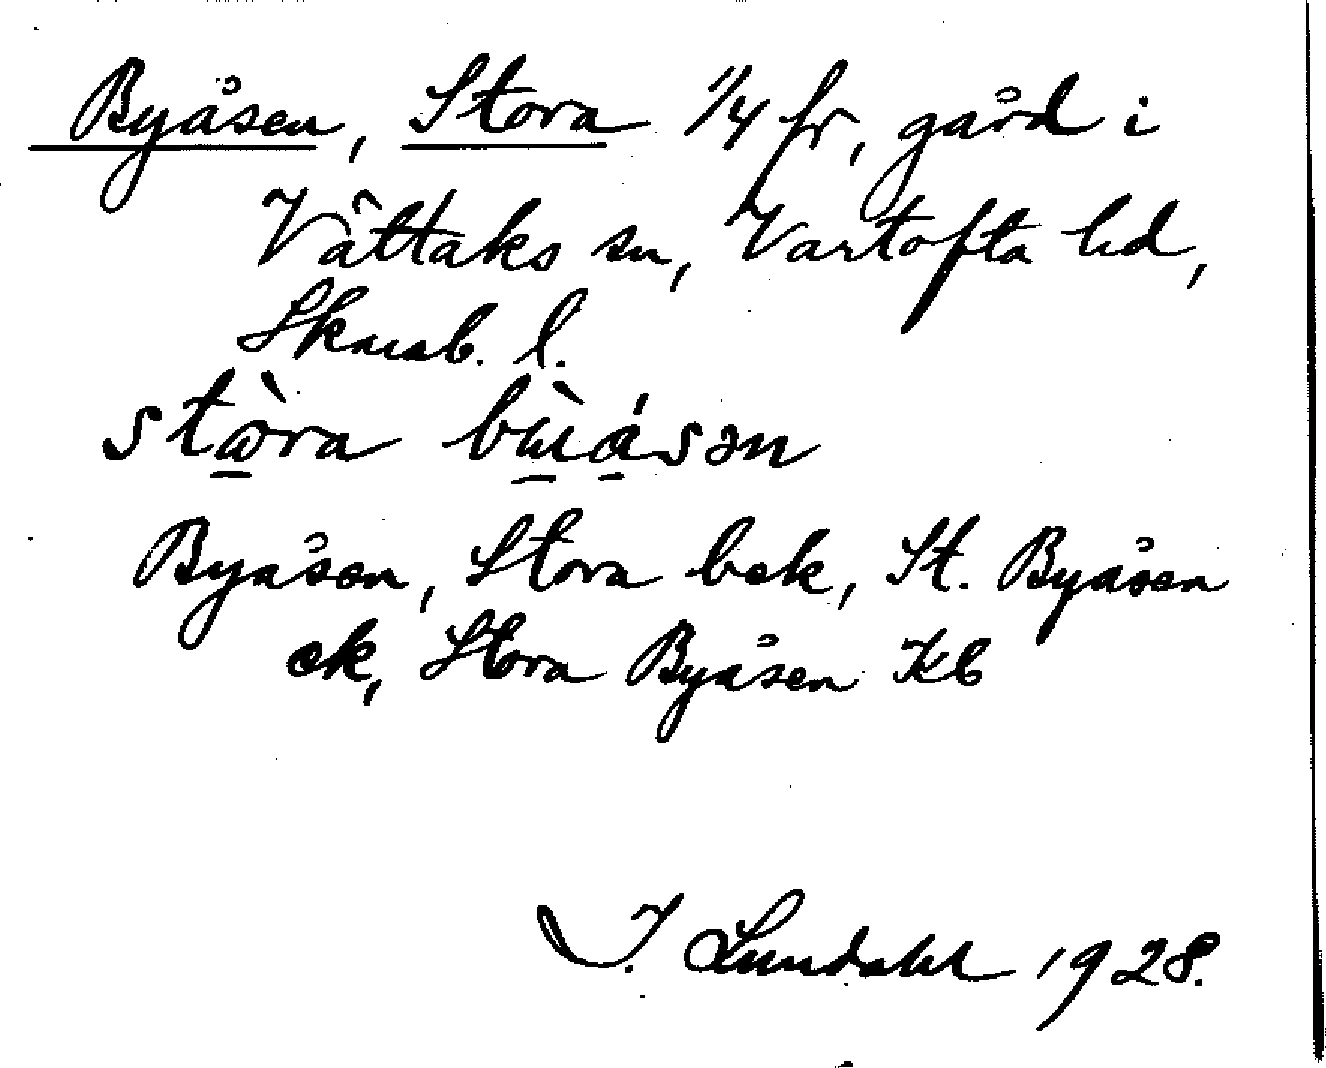 Byåsen, Stora 1/4 fr, gård i
Vättaks sn, Vartofta hd,
Skarab. l.
stɷ̀ra bɯ̀ásən
Byåsen, Stora bek, St. Byåsen
ek, Stora Byåsen Kb
I. Lundahl 1928.